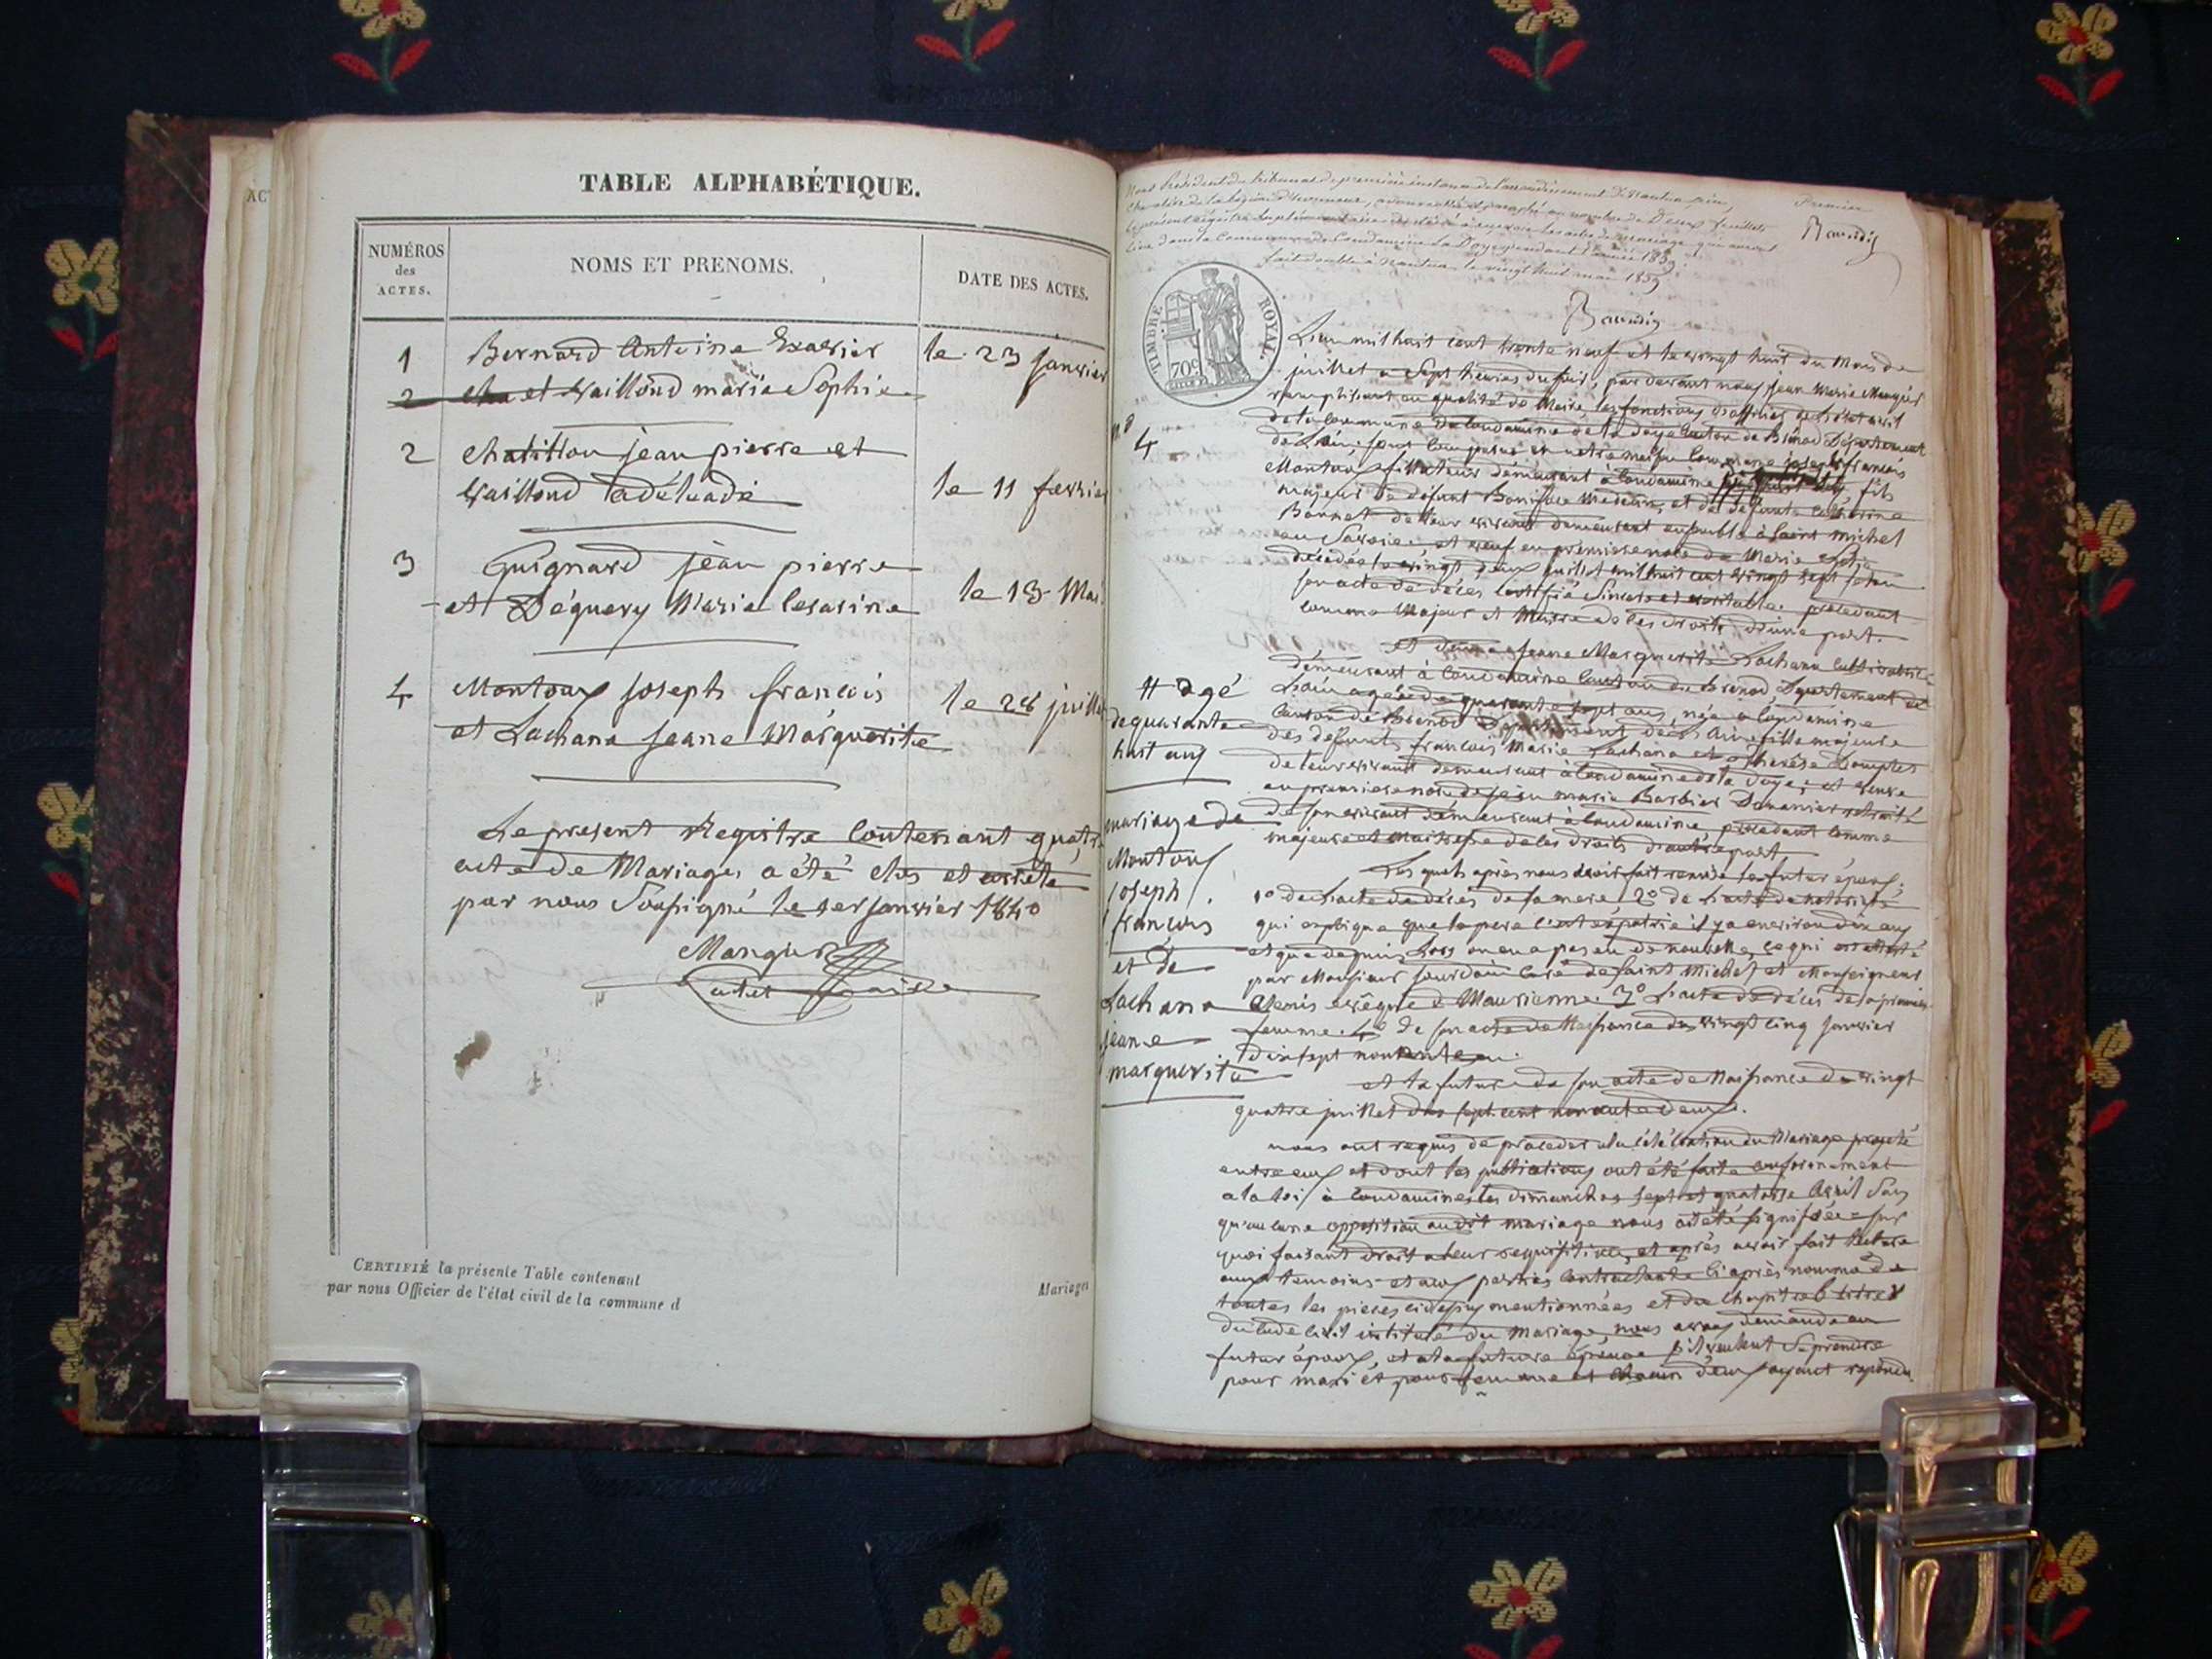 AC
TABLE ALPHABÉTIQUE.
NUMÉROS
des
ACTES.
NOMS ET PRENOMS.
DATE DES ACTES.
1 Bernard Antoine Exavier le 23 janvier
2 et Vailloud marie Sophie
2 Chatillon jean pierre et
Vailloud adélaide le 11 fevrier
3 Guignard jean pierre
et Déquery Marie Cesarine le 13 Mai
4 Montoux joseph françois le 28 juillet
et Lachana jeane Marguerite
Le present Registre Contenant quatre
acte de Mariages a été clos et arrêté
par nous Soussigné le 1er janvier 1840
CERTIFIÉ la présente Table contenant
par nous Officier de l'état civil de la commune d
Mariages
Nous Président du tribunal de première instance de l'arrondissement de Nantua
fait double à Nantua le vingt huit mai 1839
TIMBRE ROYAL.
70c
L'an mil huit cent trente neuf et le vingt huit du Mois de
juillet a Sept heures du soir, par devant nous jean Marie
remplissant en qualité de Maire les fonctions d'officier de l'état civil
de la Commune de Condamine de la Doye Canton de Brénod Département
n.o
4
de L'ain sont Comparus en notre maison Commune joseph françois
Montoux demeurant à Condamine fils
majeur de défunt et de défunte Catherine
de leur vivant demeurant ensemble à saint Michel
en Savoie. et veuf en premiere noce de Marie
décédée le vingt deux juillet mil huit cent vingt sept selon
son acte de décès Certifié Sincere et veritable. procedant
Comme Majeur et Maitre de ses droits d'une part.
et jeane Marguerite Lachana Cultivatrice
demeurant à Condamine Canton de Brenod Departement de
L'ain agée de quarante sept ans, née a Condamine
Canton de Brenod Departement de L'ain fille majeure
des defunts françois Marie Lachana et Therése
de leur vivant demeurant à Condamine de la Doye, et veuve
en premiere noce de jean marie Barbier Douanier retraité
de son vivant demeurant à Condamine, procedant Comme
majeure et maitresse de ses droits d'autre part
# agé
de quarante
huit ans
mariage de
Montoux
joseph
françois
et de
Lachana
jeane
marguerite
Les quels après nous avoir fait remise le futur époux.
1o de L'acte de décès de sa mere. 2o de L'acte de notoriété
qui explique que le pere s'est éxpatrié il y a environ dix ans
et que depuis Lors on en a pas eu de nouvelle, ce qui est attesté
par Monsieur jourdain Curé de saint Michel et Monseigneur
évêque de Maurienne. 3o L'acte de décès de sa premiere
femme. 4o de son acte de Naissance du vingt Cinq janvier
dix sept nonante un.
et la future de son acte de Naissance du vingt
quatre juillet dix sept cent nonante deux.
nous ont requis de proceder a la Célébration du Mariage projeté
entre eux et dont les publications ont été faite conformement
a la loi à Condamine les dimanches sept et quatorze Avril Sans
qu'aucune opposition au dit mariage nous ait été signifiée sur
quoi faisant droit a leur requisition, et après avoir fait lecture
aux temoins et aux parties Contractante Ci après nommé de
toutes les pieces ci dessus mentionnées et du Chapitre 6 titre
du Code Civil intitulé du Mariage, nous avons demandé au
futur époux, et a la future épouse s'il veulent Se prendre
pour mari et pour femme et Chacun d'eux ayant repondu